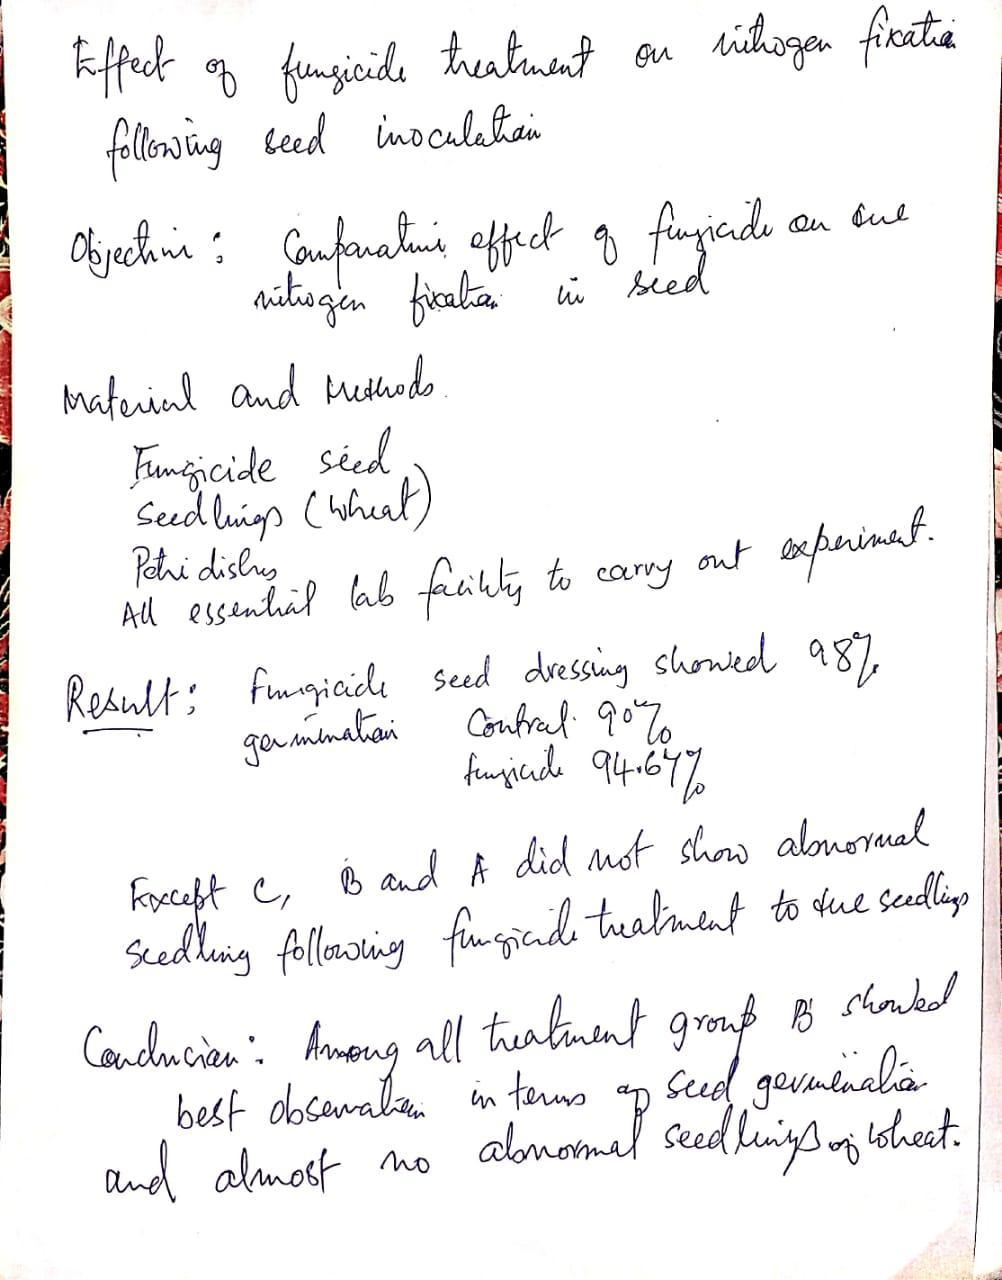 Effect of fungicide treatment on nitrogen fixation
following seed inoculation
Objective : Comparative effect of fungicide on the
nitrogen fixation in seed
Material and Methods.
Fungicide seed
Seedlings (Wheat)
Petri dishes
All essential lab facility to carry out experiment.
Result : Fungicide seed dressing showed 98%
germination Control. 90%
fungicide 94.67%
Except C, B and A did not show abnormal
seedling following fungicide treatment to the seedlings
Conclusion : Among all treatment group B showed
best observation in terms of seed germination
and almost no abnormal seedlings of wheat.